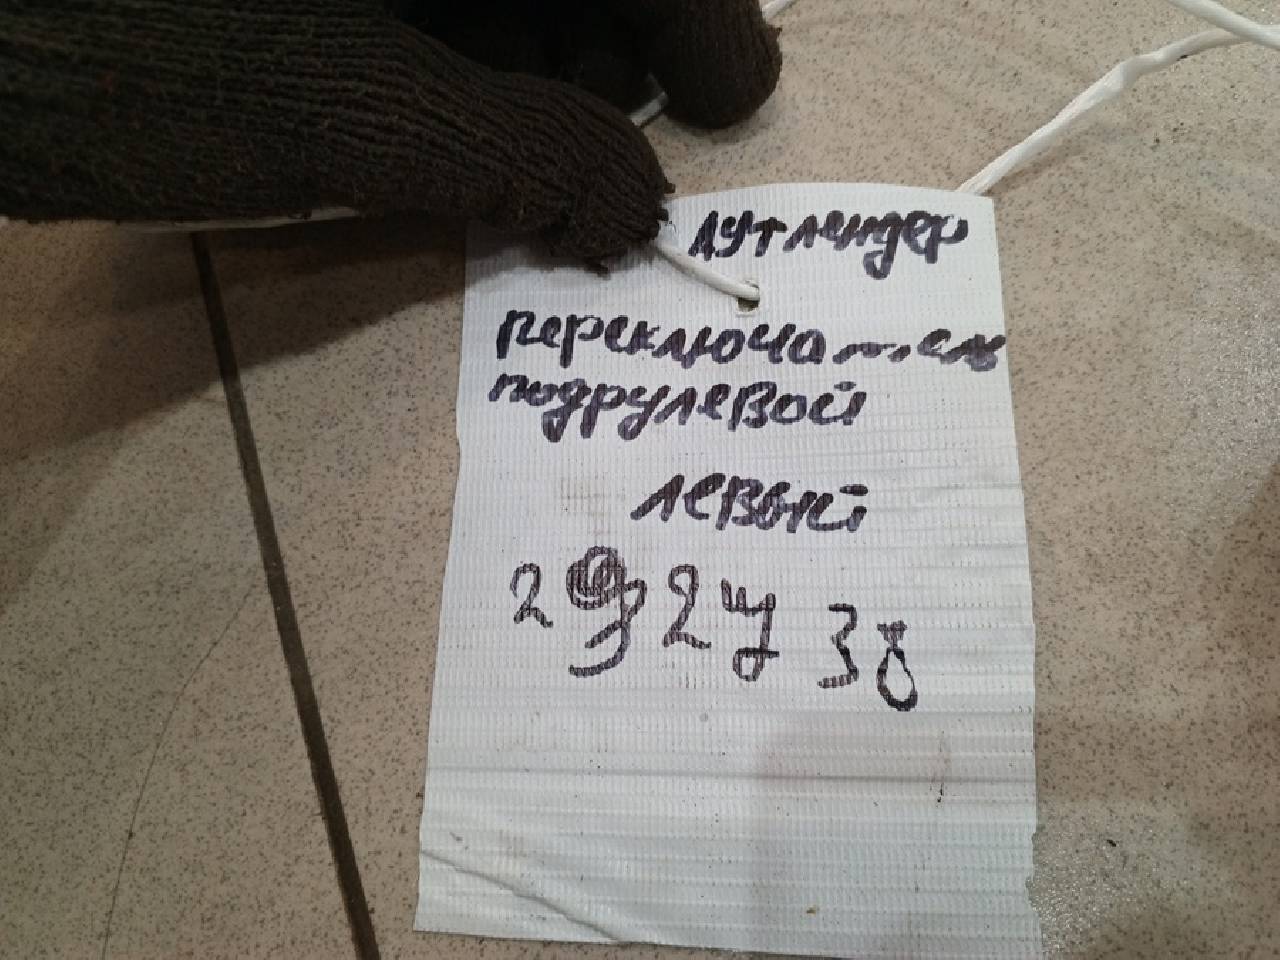 аутлендер
переключатель
подрулевой
левый
292738